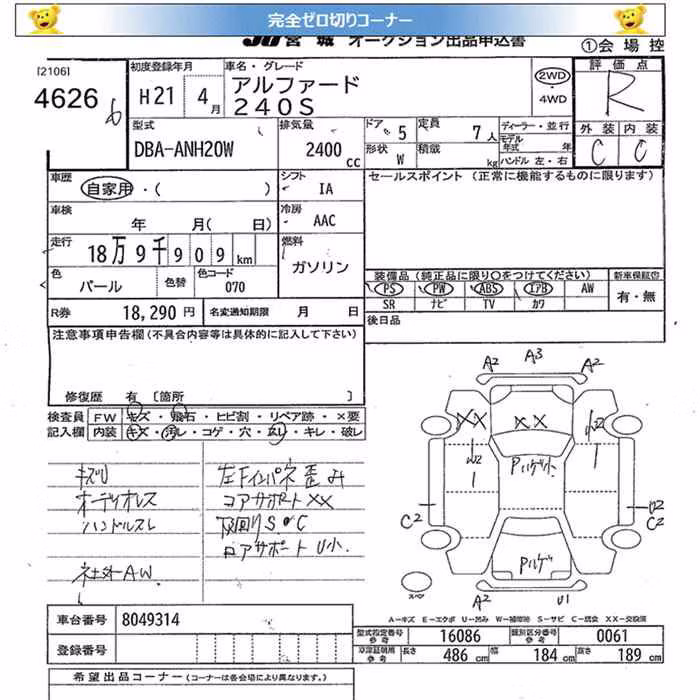 完全ゼロ切りコーナー
JU宮城 オークション出品申込書
①会場控
[2106]
4626
初度登録年月
H21 4月
車名・グレード
アルファード
240S
2WD
4WD
評価点
R
外装 内装
C C
型式
DBA-ANH20W
排気量
2400cc
ドア 5
定員 7人
形状 W
積載 kg
ディーラー・並行
モデル年式 年
ハンドル 左・右
車歴
自家用・( )
シフト
IA
セールスポイント (正常に機能するものに限ります)
車検
年 月( 日)
冷房
AAC
走行
18万9千909km
燃料
ガソリン
色
パール
色替
色コード
070
装備品(純正品に限り○をつけてください)
PS PW ABS エアB AW
SR ナビ TV カワ
新車保証書
有・無
R券
18,290円
名変通知期限 月 日
後日品
注意事項申告欄(不具合内容等は具体的に記入して下さい)
修復歴 有 [箇所 ]
検査員記入欄
FW キズ・飛石・ヒビ割・リペア跡・×要
内装 キズ・汚レ・コゲ・穴・スレ・キレ・破レ
オーディオレス
ハンドルスレ
社外AW
左Fインパネ歪み
コアサポートXX
下回りS・C
ロアサポートU小
A2 A3 A2
XX
XX
W2
C2
U2
C2
A2
U1
スペア
A-キズ E-エクボ U-凹み W-補修跡 S-サビ C-腐食 XX-交換済
車台番号
8049314
登録番号
型式指定番号 参考
16086
類別区分番号 参考
0061
車庫証明用 参考
長さ 486cm
幅 184cm
高さ 189cm
希望出品コーナー(コーナーは各会場により異なります。)